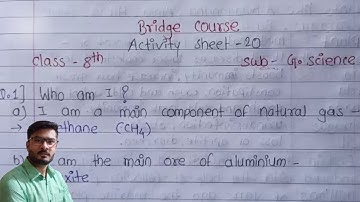 Bridge Course
Activity sheet-20
class - 8th sub- G. science
Q.1] Who am I?
a) I am a main component of natural gas -
→ Methane (CH4)
b) I am the main ore of aluminium -